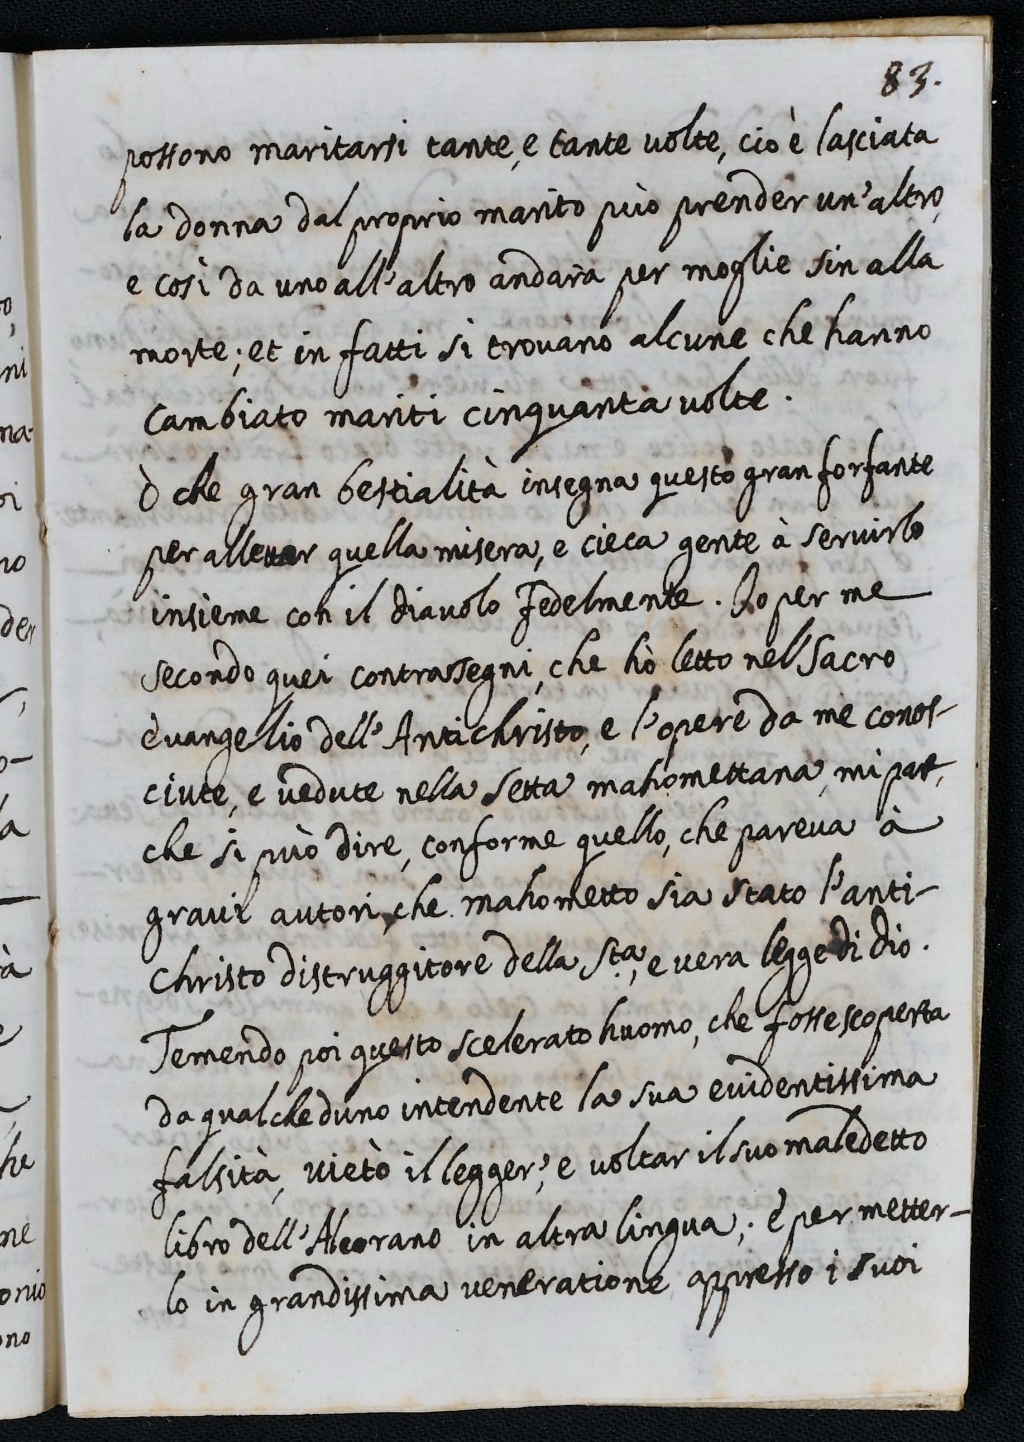 83.
possono maritarsi tante, e tante uolte, cio è lasciata
la donna dal proprio marito può prender un'altro,
e così da uno all'altro andarà per moglie sin alla
morte; et in fatti si trouano alcune che hanno
Cambiato mariti cinquanta uolte.
ò che gran bestialità insegna questo gran forfante
per alleuar quella misera, e cieca gente à seruirlo
insieme con il diauolo fedelmente. Io per me
secondo quei contrasegni, che hò letto nel Sacro
euangelio dell'Antichristo, e l'opere da me conos-
ciute, e uedute nella setta mahomettana, mi par,
che si può dire, conforme quello, che pareua à
graui autori, che mahometto sia stato l'anti-
Christo distruggitore della Sta, e vera legge di Dio.
Temendo poi questo scelerato huomo, che fosse scoperta
da qualcheduno intendente la sua euidentissima
falsità, uietò il legger', e uoltar il suo maledetto
libro dell'Alcorano in altra lingua; è per metter-
lo in grandissima veneratione appresso i suoi